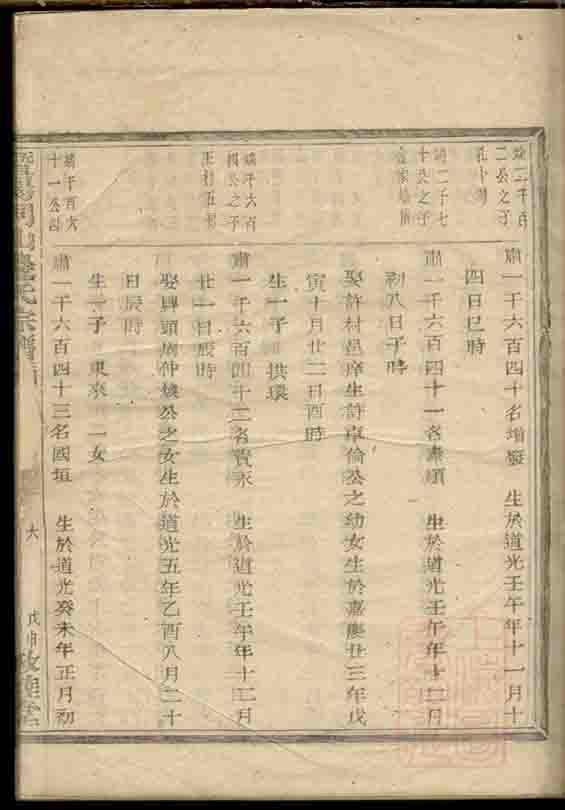 二公之子
肅一千六百四十名增 生於道光壬午年十一月十
四日巳時
十公之子
肅一千六百四十一名 生於道光壬午年十二月
初八日子時
娶許村邑庠生許卓倫公之幼女生於嘉慶廿三年戊
寅十月廿二日酉時
生一子 拱璪
端千六百
公之子
肅一千六百四十二名貲永 生於道光壬午年十二月
廿一日辰時
娶興頭 仲 公之女生於道光五年乙酉八月二十
日辰時
生一子 東來 一女
端千百六
十一公
肅一千六百四十三名國垣 生於道光癸未年正月初
氏宗譜
六
戊申 敦睦堂